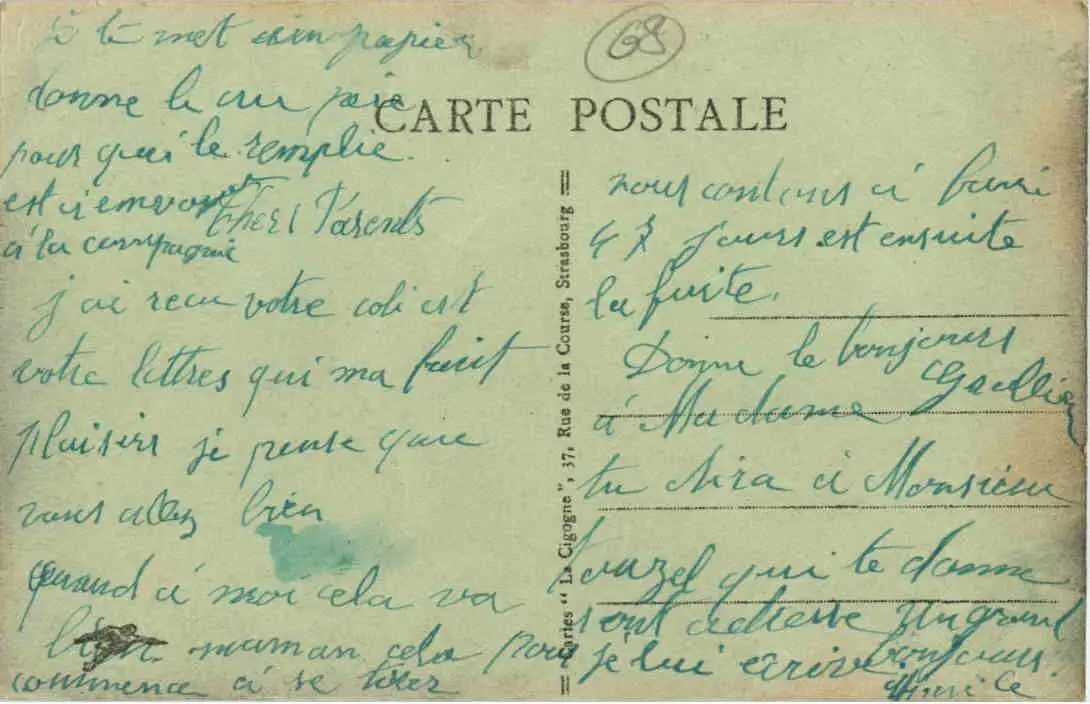 68
CARTE POSTALE
Si tu met un papier
donne le au père
pour qui le remplie.
est à
à la compagnie
Chers Parents
j'ai recu votre coli est
votre lettres qui ma fait
plaisirs je pense que
vous allez bien
quand à moi cela va
bien maman cela
commence à se tirer
Cartes " La Cigogne ", 37, Rue de la Course, Strasbourg
nous contons à
47 jours est ensuite
la fuite.
Donne le bonjours
à Madame
tu dira à Monsieur
Touzel qui te donne
sont adresse
je lui
un grand
bonjours